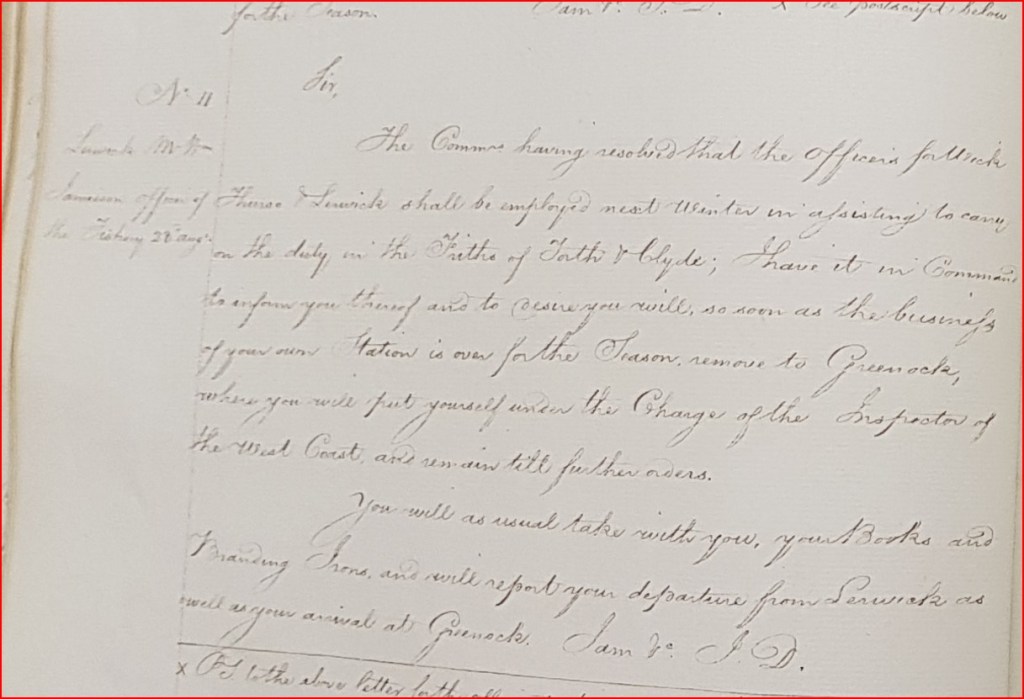 for the Season.
I am &c. J. D. x See postscript below
No. 11
Sir,
Lerwick Mr
Jamieson officer of
the Fishery 28 Augt.
The Commrs. having resolved that the officers for Wick
Thurso & Lerwick shall be employed next Winter in assisting to carry
on the duty in the Friths of Forth & Clyde; I have it in Command
to inform you thereof and to desire you will, so soon as the business
of your own Station is over for the Season, remove to Greenock,
where you will put yourself under the Charge of the Inspector of
the West Coast, and remain till further orders.
You will as usual take with you, your Books and
Branding Irons, and will report your departure from Lerwick as
well as your arrival at Greenock. I am &c. J. D.
x P.S. to the above letter for the